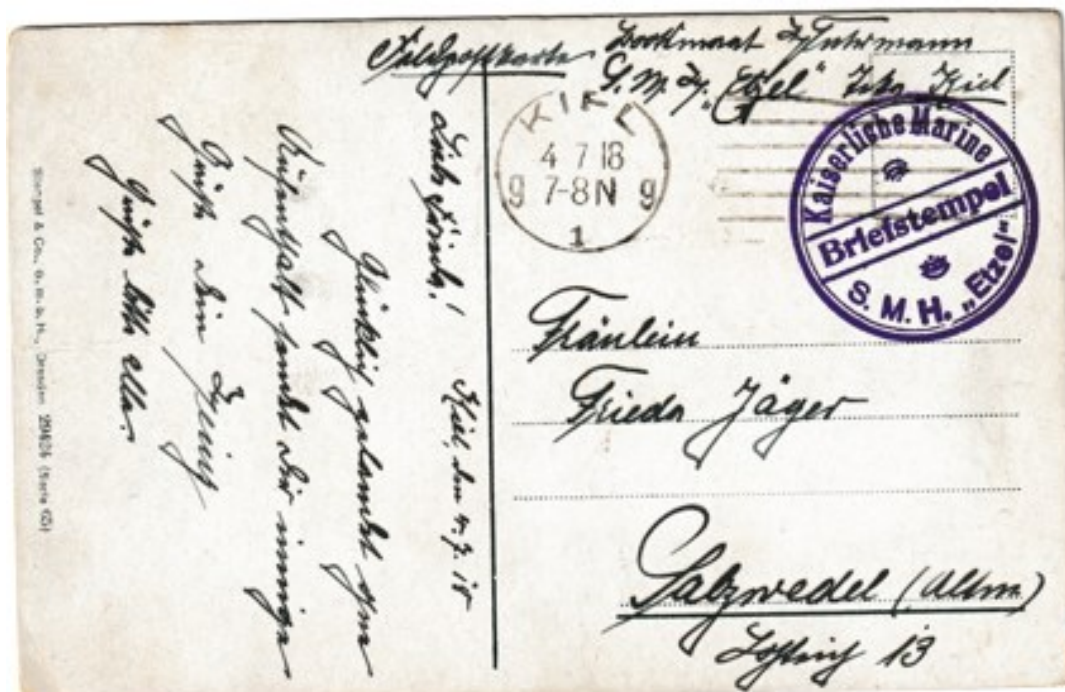 Feldpostkarte
Bootsmaat
S.M.H. „Etzel“ Kiel
KIEL
4 7 18
9 7-8N 9
1
Kaiserliche Marine
Briefstempel
S. M. H. „Etzel“
Fräulein
Frieda Jäger
Salzwedel (Altm
13
Kiel, den 4.7.18
Liebe Frieda!
Glücklich gelandet vom
sendet Dir innige
Grüße Dein
Grüße bitte alle.
Stengel & Co., G. m. b. H., Dresden 29626